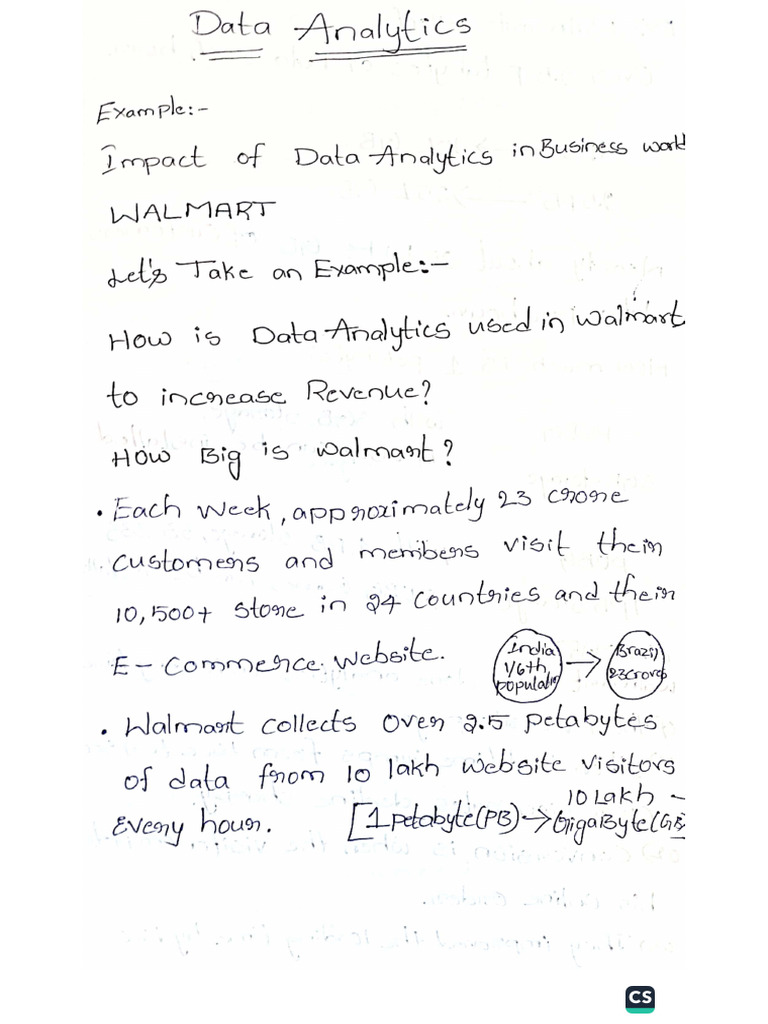 Data Analytics
Example:-
Impact of Data Analytics in Business world
WALMART
Let's Take an Example:-
How is Data Analytics used in Walmart
to increase Revenue?
How Big is Walmart?
• Each Week, approximately 23 crore
customers and members visit their
10,500+ store in 24 countries and their
E-Commerce website.
India
1/6th
populatio
→
Brazil
23crores
• Walmart collects over 2.5 petabytes
of data from 10 lakh website visitors
Every hour.
[1 petabyte(PB) → 10 Lakh -
GigaByte(GB)
CS